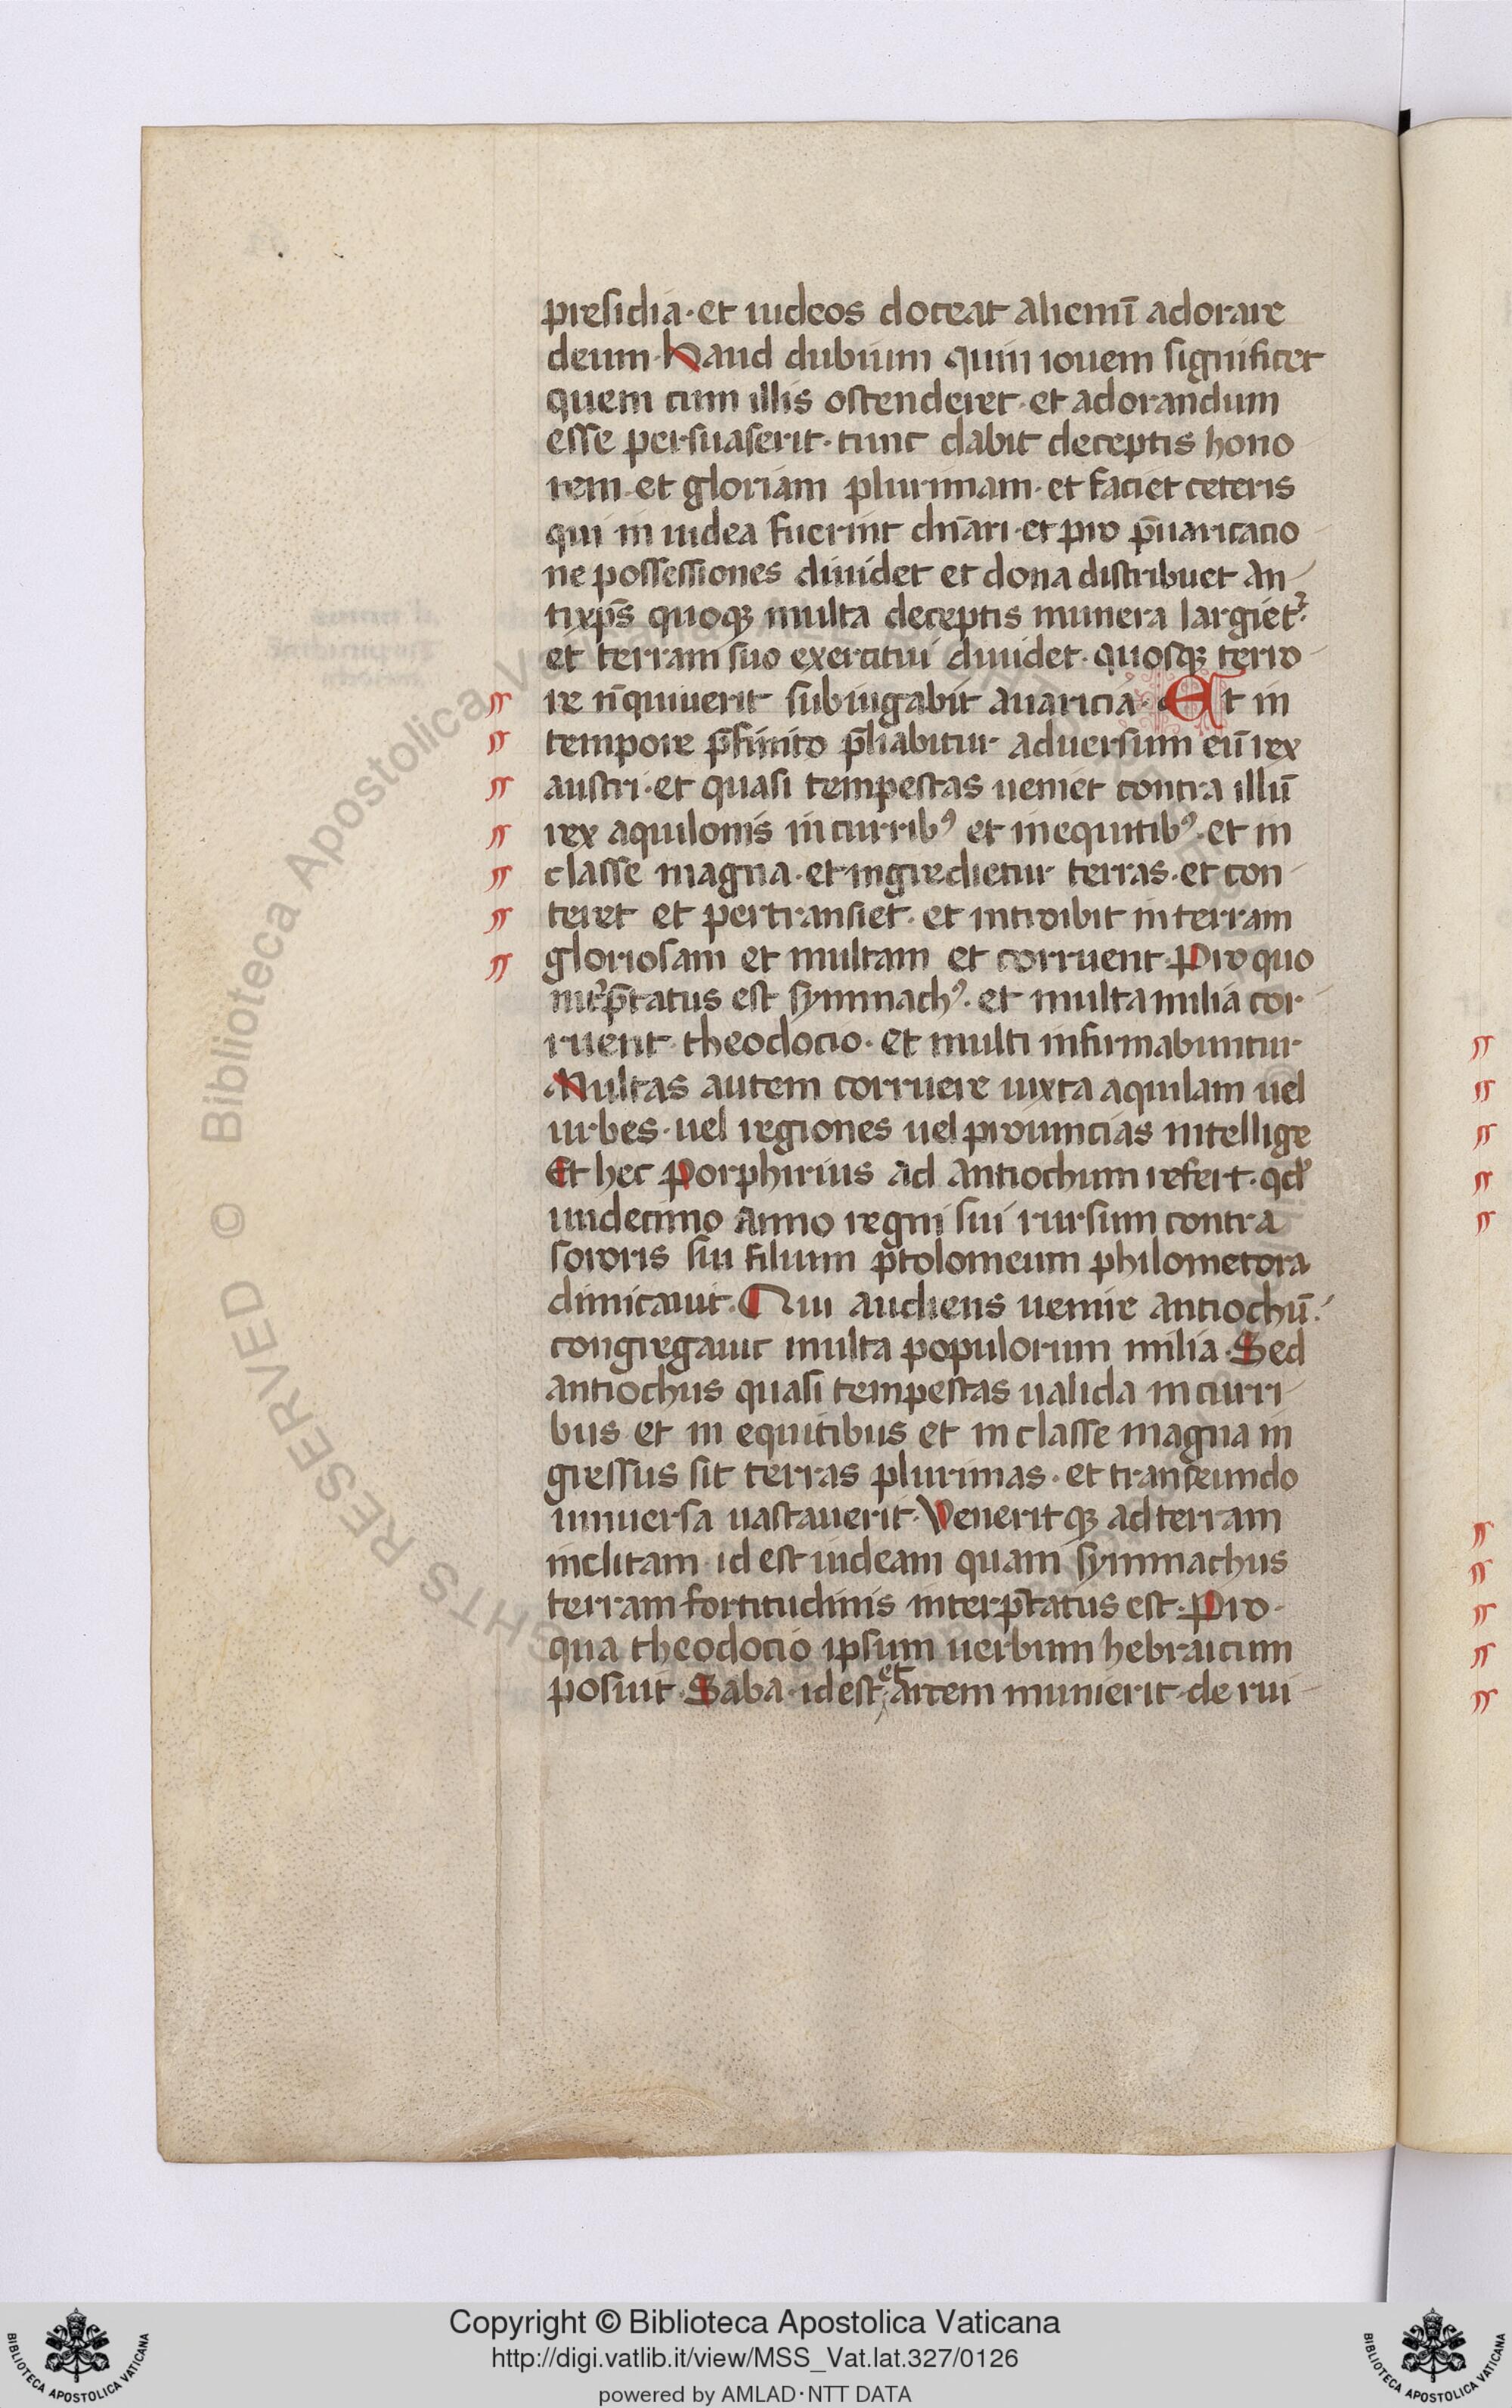 presidia · et iudeos doceat alienū adorare
deum · Haud dubium quin iouem significet
quem cum illis ostenderet · et adorandum
esse persuaserit · tunc dabit deceptis hono
rem · et gloriam plurimam · et faciet ceteris
qui in iudea fuerint dn̄ari · et pro p̄uaricatio
ne possessiones diuidet et dona distribuet an
tixp̄s quoqꝫ multa deceptis munera largiet᷑ ·
et terram suo exercitui diuidet · quosqꝫ terro
re n̄ quiuerit subiugabit auaricia · Et in
tempore p̄finito p̄liabitur aduersum eū rex
austri · et quasi tempestas ueniet contra illū
rex aquilonis in curribꝰ et in equitibꝰ · et in
classe magna · et ingredietur terras · et con
teret et pertransiet · et introibit in terram
gloriosam et multam et corruent · Pro quo
int᷑p̄tatus est symmachꝰ · et multa milia cor
ruent · theodocio · et multi infirmabuntur
Multas autem corruere iuxta aquilam uel
urbes · uel regiones uel prouincias intellige
Et hec Porphirius ad antiochum refert · qd̓
undecimo anno regni sui rursum contra
sororis sui filium ptolomeum philometora
dimicauit · Qui audiens uenire antiochū ·
congregauit multa populorum milia · Sed
antiochus quasi tempestas ualida in curri
bus et in equitibus et in classe magna in
gressus sit terras plurimas · et transeundo
uniuersa uastauerit · Veneritqꝫ ad terram
inclitam · id est iudeam quam symmachus
terram fortitudinis interp̄tatus est · Pro
qua theodocio ipsum uerbum hebraicum
posuit · Saba · id est · et artem munierit · de rui
Copyright © Biblioteca Apostolica Vaticana
http://digi.vatlib.it/view/MSS_Vat.lat.327/0126
powered by AMLAD · NTT DATA
BIBLIOTECA APOSTOLICA VATICANA
BIBLIOTECA APOSTOLICA VATICANA